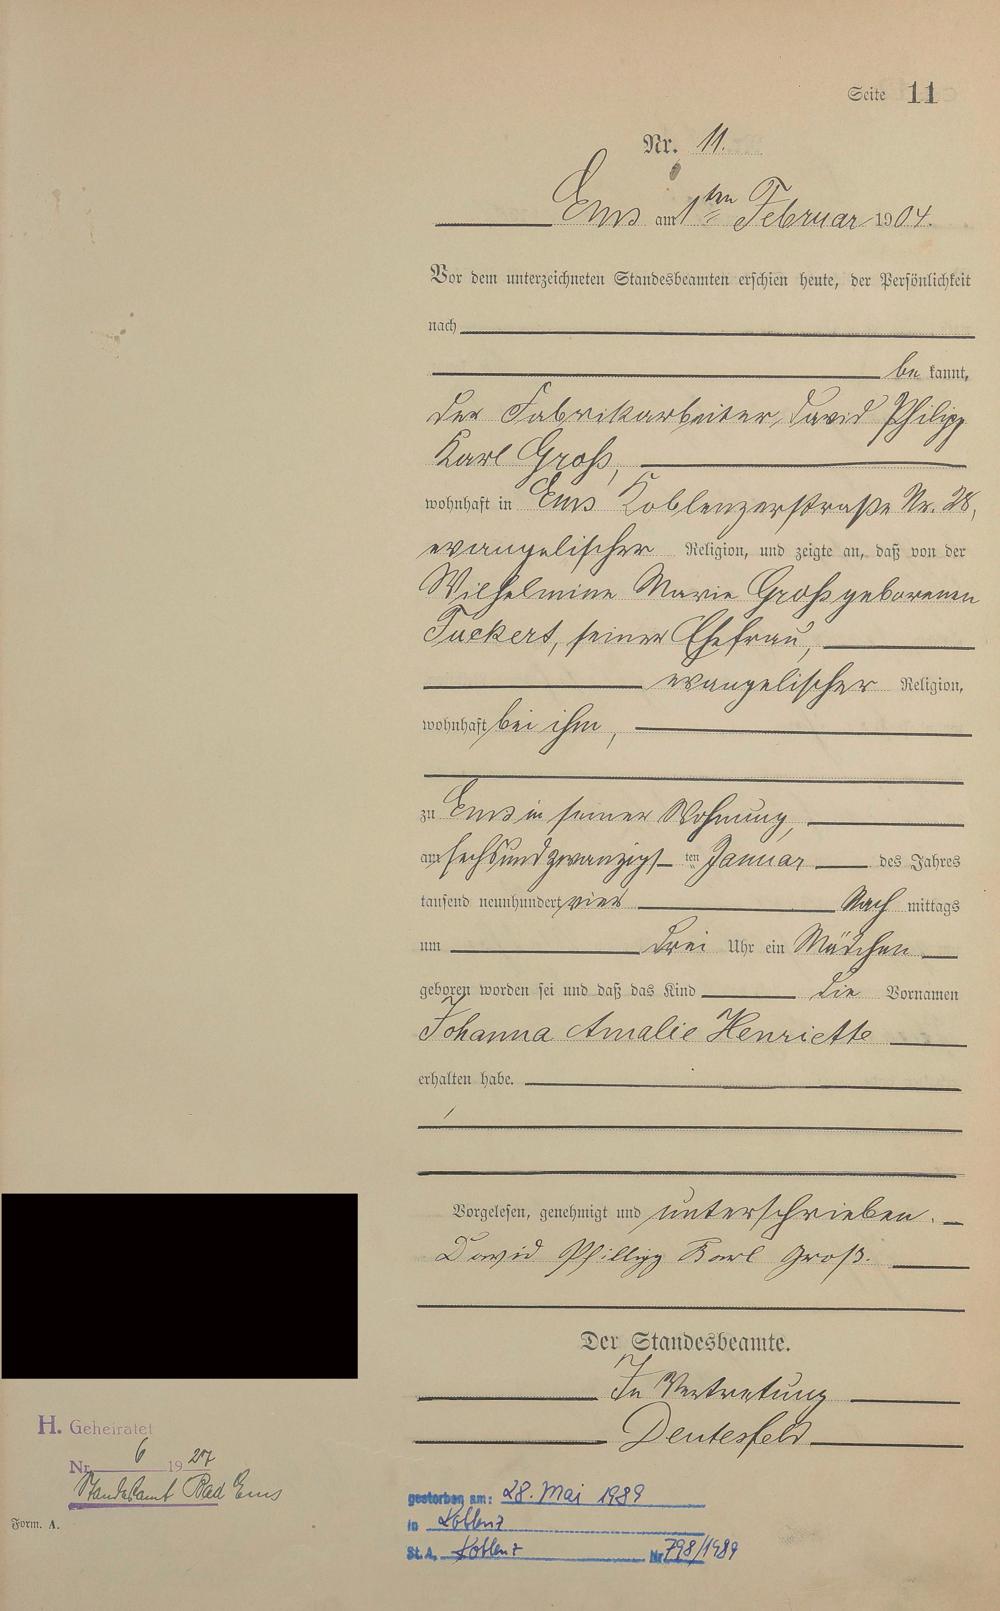 Seite 11
Nr. 11.
Ems am 1ten Februar 1904.
Vor dem unterzeichneten Standesbeamten erschien heute, der Persönlichkeit
nach
be kannt,
der Fabrikarbeiter, David Philipp
Karl Groß,
wohnhaft in Ems Koblenzerstraße Nr. 28,
evangelischer Religion, und zeigte an, daß von der
Wilhelmine Marie Groß geborenen
Tuckert, seiner Ehefrau,
evangelischer Religion,
wohnhaft bei ihm,
zu Ems in seiner Wohnung,
am sechsundzwanzigsten Januar des Jahres
tausend neunhundert vier Nach mittags
um drei Uhr ein Mädchen
geboren worden sei und daß das Kind die Vornamen
Johanna Amalie Henriette
erhalten habe.
Vorgelesen, genehmigt und unterschrieben.
David Phillipp Karl Groß.
Der Standesbeamte.
In Vertretung
Deutesfeld
H. Geheiratet
Nr. 6 1927
Standesamt Bad Ems
Form. A.
gestorben am: 28. Mai 1989
in Koblenz
St.A. Koblenz Nr 798/1989